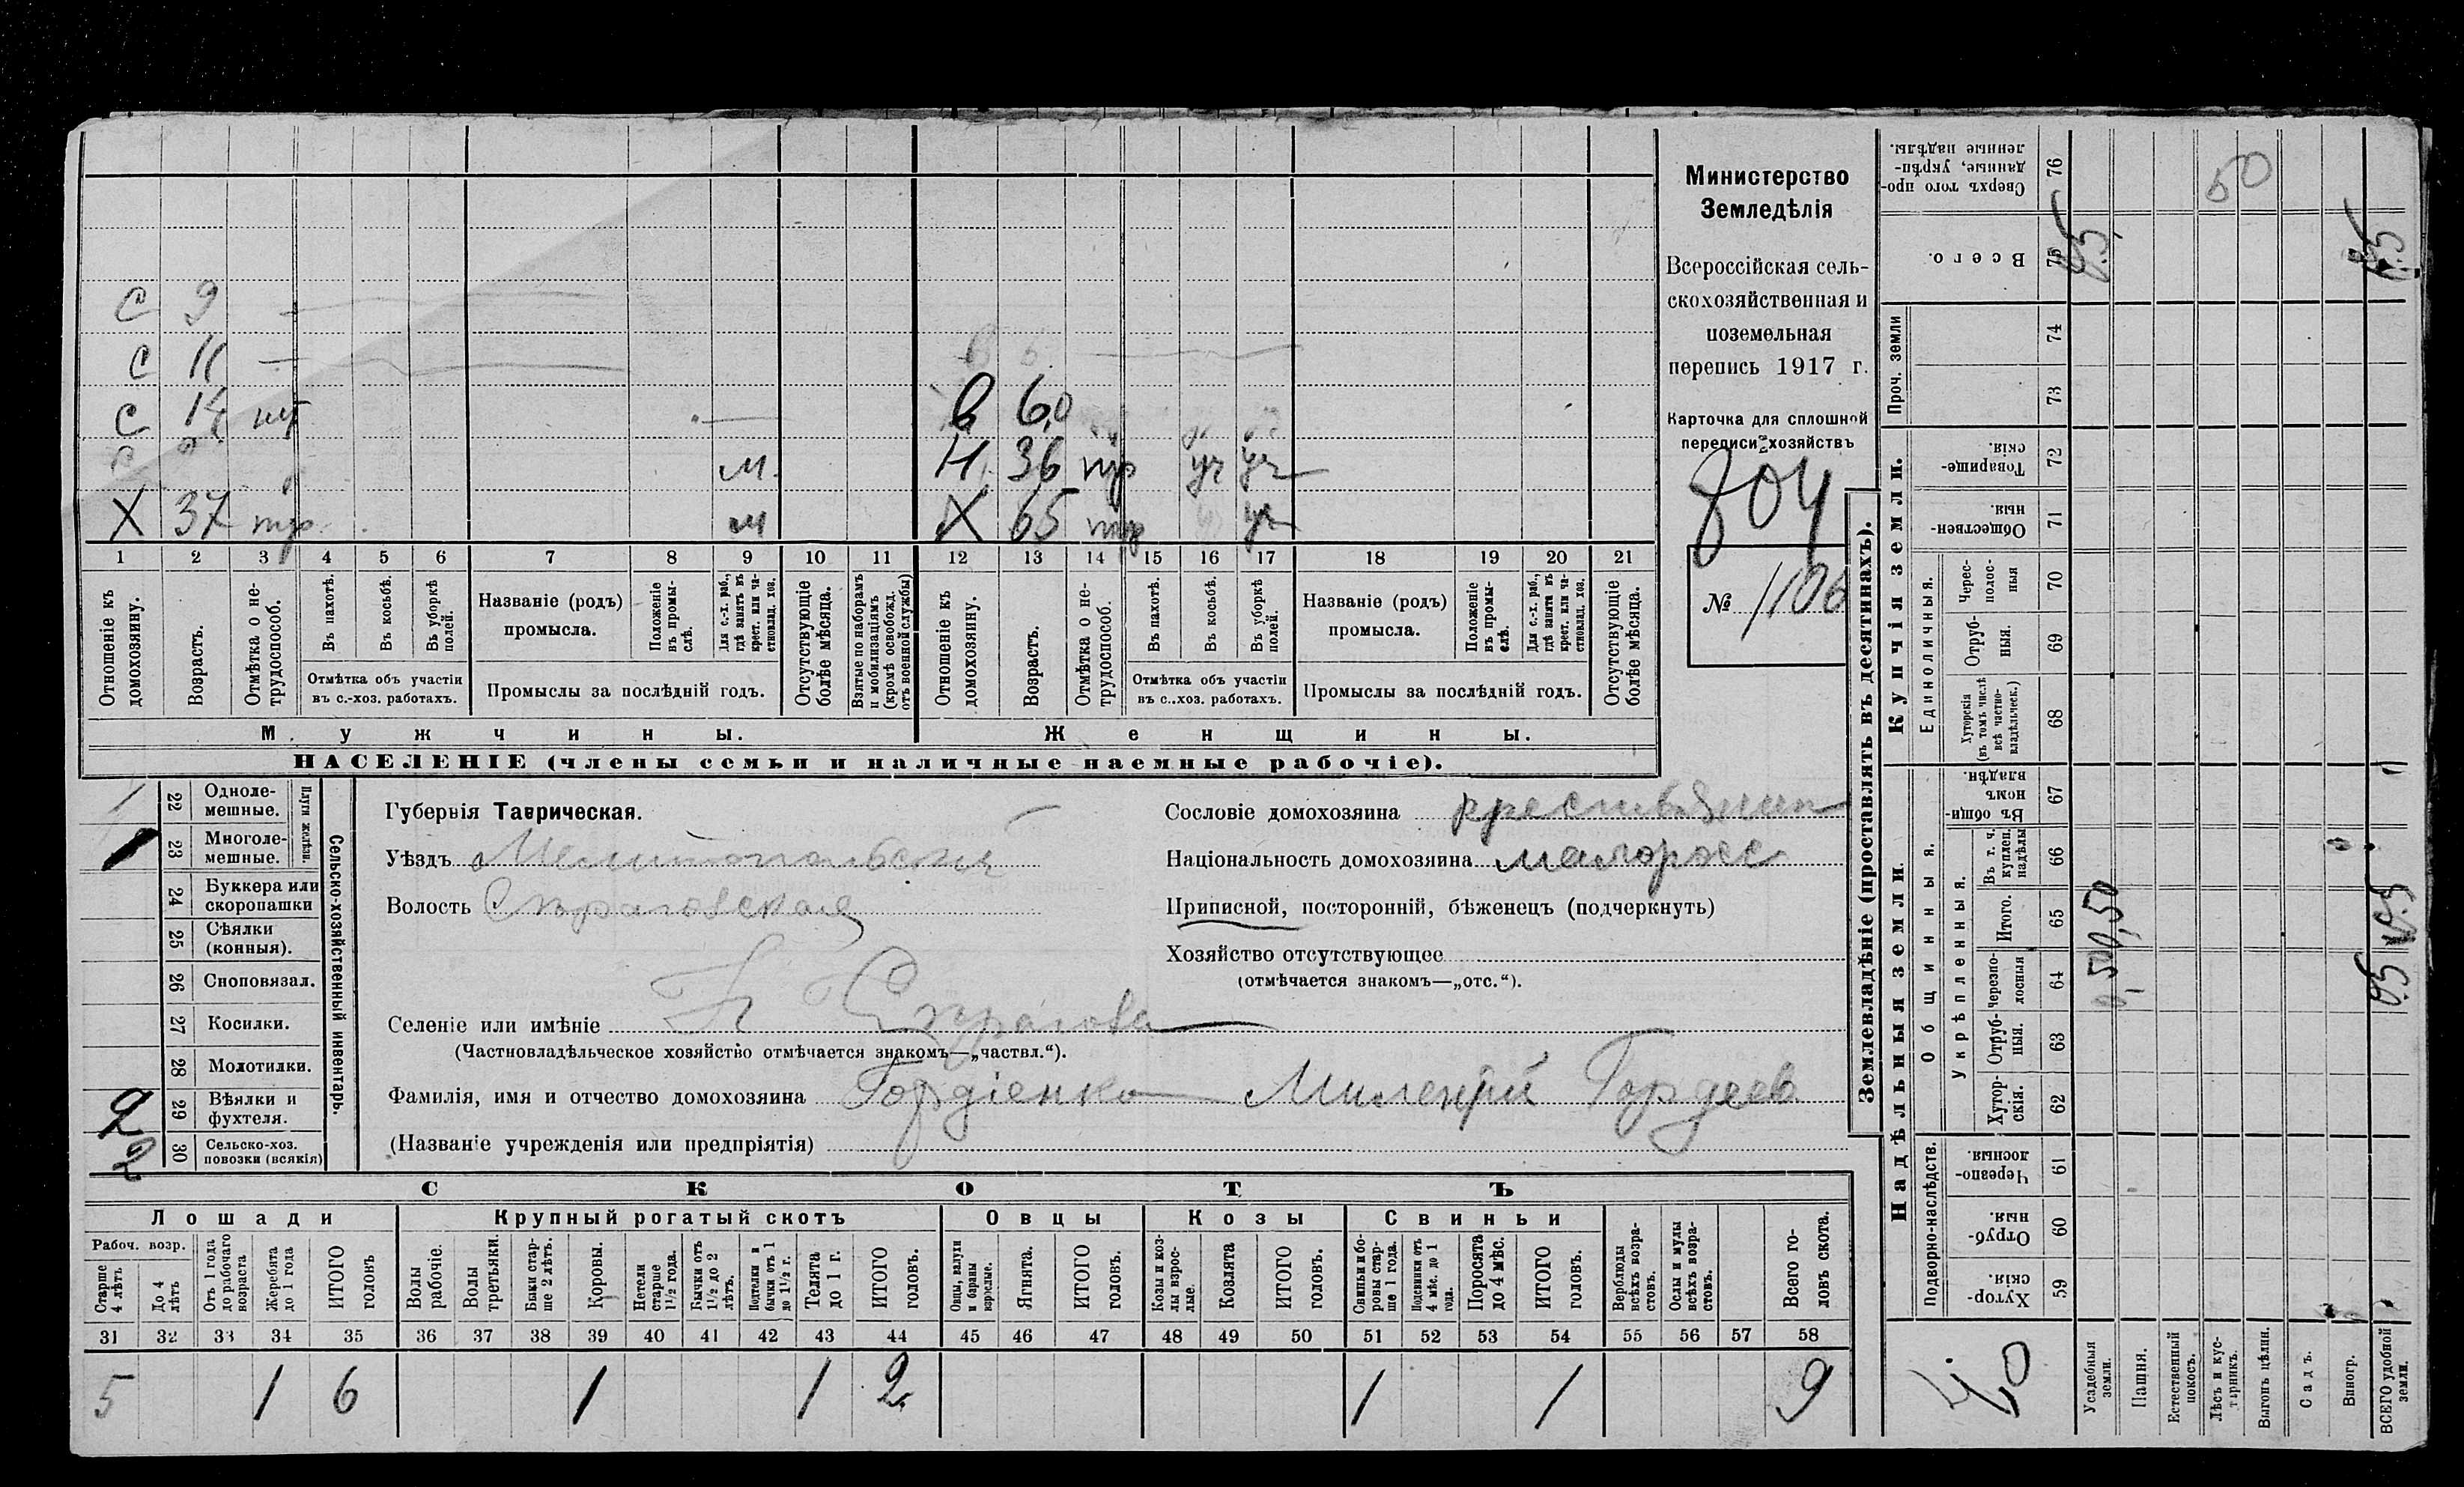 С 9 —
С 11 —
С 14 нт
м
Х 37 м
в 6
в 60
Н 36 уч уч
Х 65 уч
1 2 3 4 5 6 7 8 9 10 11 12 13 14 15 16 17 18 19 20 21
Отношеніе къ домохозяину.
Возрастъ.
Отмѣтка о не-
трудоспособ.
Въ пахотѣ.
Въ косьбѣ.
Въ уборкѣ полей.
Отмѣтка объ участіи
въ с.-хоз. работахъ.
Названіе (родъ)
промысла.
Положеніе въ промы-
слѣ.
Для с.-х. раб., гдѣ занятъ въ крест. или ча-
стновлад. хоз.
Промыслы за послѣдній годъ.
Отсутствующіе болѣе мѣсяца.
Взятые по наборамъ и мобилизаціямъ (кромѣ освобожд. отъ военной службы)
Отношеніе къ домохозяину.
Возрастъ.
Отмѣтка о не-
трудоспособ.
Въ пахотѣ.
Въ косьбѣ.
Въ уборкѣ полей.
Отмѣтка объ участіи
въ с.-хоз. работахъ.
Названіе (родъ)
промысла.
Положеніе въ промы-
слѣ.
Для с.-х. раб., гдѣ занята въ крест. или ча-
стновлад. хоз.
Промыслы за послѣдній годъ.
Отсутствующіе болѣе мѣсяца.
Мужчины.
Женщины.
НАСЕЛЕНІЕ (члены семьи и наличные наемные рабочіе).
Министерство
Земледѣлія
Всероссійская сель-
скохозяйственная и
поземельная
перепись 1917 г.
Карточка для сплошной
переписи хозяйствъ
804
№ 1106
22 Одноле-
мешные.
23 Многоле-
мешные.
Плуги желѣзн.
24 Буккера или
скоропашки
25 Сѣялки
(конныя).
26 Сноповязал.
27 Косилки.
28 Молотилки.
2 29 Вѣялки и
фухтеля.
2 30 Сельско-хоз.
повозки (всякія)
Сельско-хозяйственный инвентарь.
Губернія Таврическая.
Уѣздъ Мелитопольскій
Волость Строгоvская
Селеніе или имѣніе
(Частновладѣльческое хозяйство отмѣчается знакомъ—„частвл.“).
Фамилія, имя и отчество домохозяина Гордіенко Гордеев
(Названіе учрежденія или предпріятія)
Сословіе домохозяина крестьянин
Національность домохозяина малоросс
Приписной, посторонній, бѣженецъ (подчеркнуть)
Хозяйство отсутствующее
(отмѣчается знакомъ—„отс.“).
СКОТЪ
Лошади Крупный рогатый скотъ Овцы Козы Свиньи
Рабоч. возр.
Старше 4 лѣтъ
До 4 лѣтъ
Отъ 1 года до рабочаго возраста
Жеребята до 1 года
ИТОГО головъ
Волы рабочіе.
Волы третьяки.
Быки стар-
ше 2 лѣтъ.
Коровы.
Нетели старше 1½ года.
Бычки отъ 1½ до 2 лѣтъ.
Подтелки и бычки отъ 1 до 1½ г.
Телята до 1 г.
ИТОГО головъ.
Овцы, валухи и бараны взрослые.
Ягнята.
ИТОГО головъ.
Козы и коз-
лы взрос-
лые.
Козлята
ИТОГО головъ.
Свиньи и бо-
ровы стар-
ше 1 года.
Подсвинки отъ 4 мѣс. до 1 года.
Поросята до 4 мѣс.
ИТОГО головъ.
Верблюды всѣхъ возра-
стовъ.
Ослы и мулы всѣхъ возра-
стовъ.
Всего го-
ловъ скота.
31 32 33 34 35 36 37 38 39 40 41 42 43 44 45 46 47 48 49 50 51 52 53 54 55 56 57 58
5 1 6 1 1 2 1 1 9
Землевладѣніе (проставлять въ десятинахъ).
Надѣльныя земли.
Купчія земли.
Проч. земли
Подворно-наслѣдств.
Общинныя.
Укрѣпленныя.
Единоличныя.
Сверхъ того про-
данные, укрѣп-
ленные надѣлы. 76
Всего. 75
74
73
Товарище-
скія. 72
Обществен-
ныя. 71
Черес-
полос-
ныя 70
Отруб-
ныя. 69
Хуторскія (въ томъ числѣ всѣ частно-
владѣльческ.) 68
Въ общин-
номъ
владѣн. 67
Въ т. ч. куплен. надѣлы 66
Итого. 65
Черезпо-
лосныя 64
Отруб-
ныя. 63
Хутор-
скія. 62
Черезпо-
лосныя. 61
Отруб-
ныя. 60
Хутор-
скія. 59
50
0,50
0,50
05
Усадебныя земли.
Пашня.
Естественный покосъ.
Лѣсъ и кус-
тарникъ.
Выгонъ цѣлин.
Садъ.
Виногр.
ВСЕГО удобной земли.